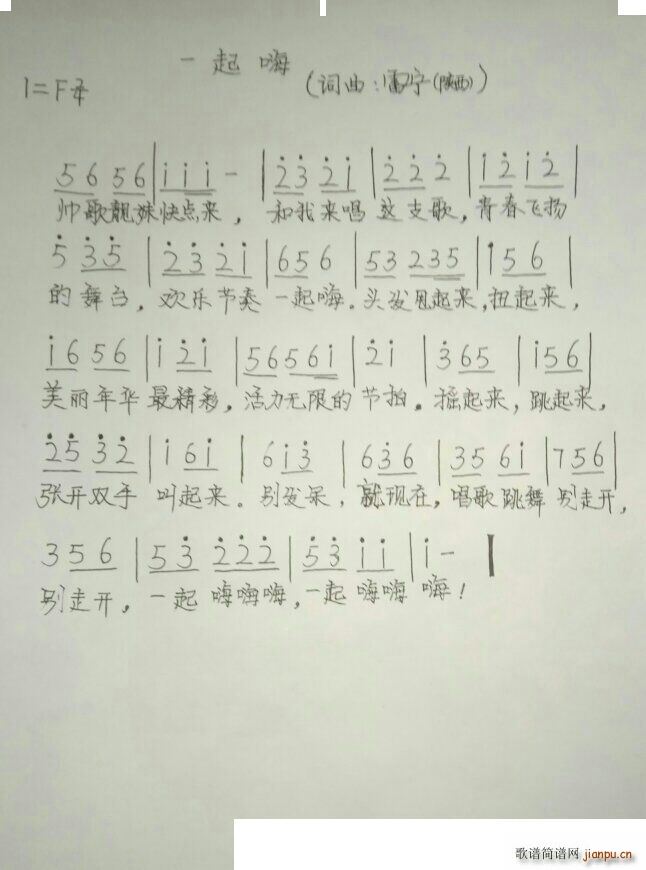 一起嗨
1=F 2/4 (词曲:雷宁(陕西))
5 6 5 6 | i i i - | 2̇ 3̇ 2̇ i | 2̇ 2̇ 2̇ | i 2̇ i 2̇ |
帅歌靓妹快点来，和我来唱这支歌，青春飞扬
5̇ 3̇ 5̇ | 2̇ 3̇ 2̇ i | 6 5 6 | 5 3 2 3 5 | i 5 6 |
的舞台，欢乐节奏一起嗨。头发甩起来，扭起来，
i 6 5 6 | i 2̇ i | 5 6 5 6 i | 2̇ i | 3̇ 6 5 | i 5 6 |
美丽年华最精彩，活力无限的节拍。摇起来，跳起来，
2̇ 5̇ 3̇ 2̇ | i 6 i | 6 i 3̇ | 6 3̇ 6 | 3 5 6 i | 7 5 6 |
张开双手叫起来。别发呆，就现在，唱歌跳舞别走开，
3 5 6 | 5 3̇ 2̇ 2̇ 2̇ | 5̇ 3̇ i i | i - ‖
别走开，一起嗨嗨嗨，一起嗨嗨嗨！
歌谱简谱网 jianpu.cn